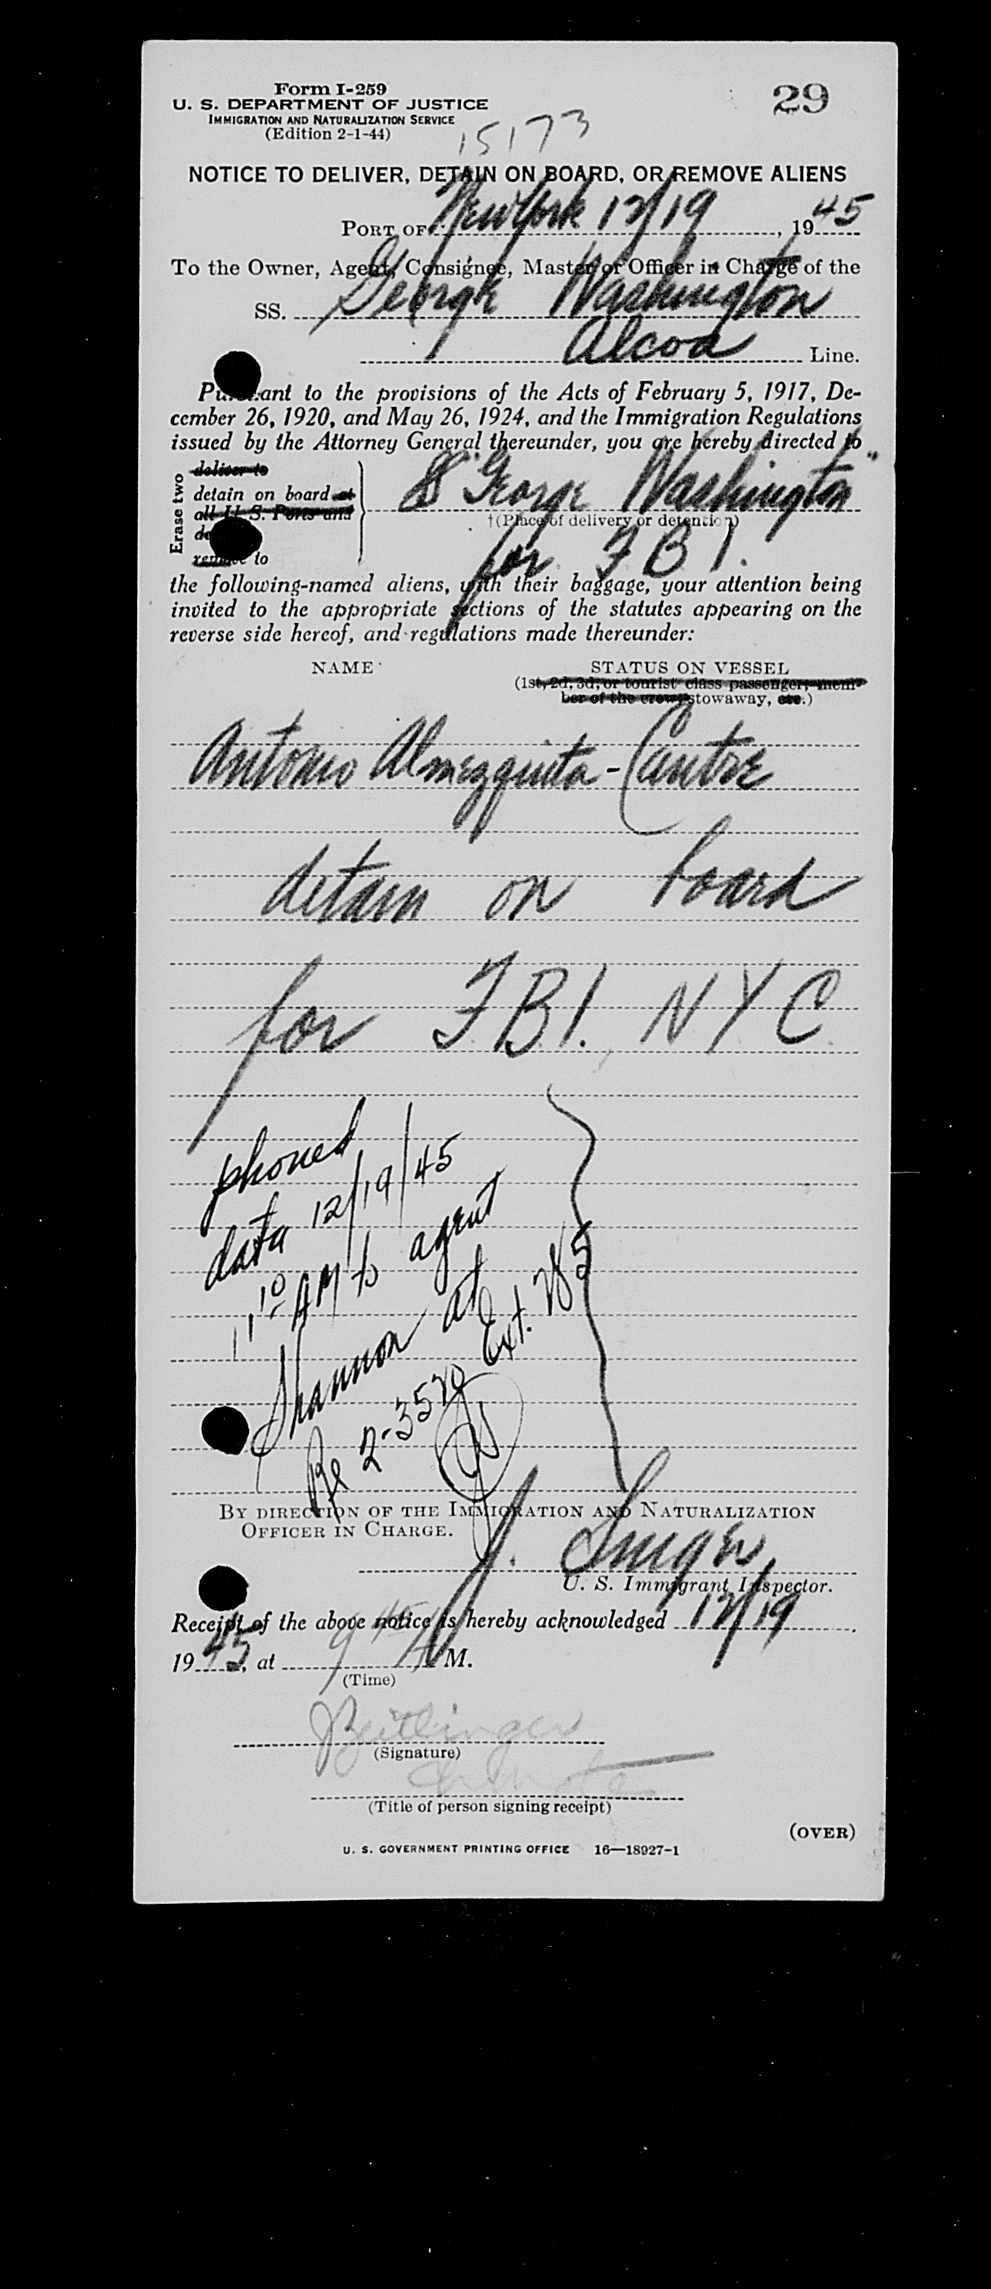 Form I-259
29
U. S. DEPARTMENT OF JUSTICE
IMMIGRATION AND NATURALIZATION SERVICE
(Edition 2-1-44)
15173
NOTICE TO DELIVER, DETAIN ON BOARD, OR REMOVE ALIENS
PORT OF New York 12/19, 1945
To the Owner, Agent, Consignee, Master or Officer in Charge of the
SS. George Washington
Alcoa Line.
Pursuant to the provisions of the Acts of February 5, 1917, De-
cember 26, 1920, and May 26, 1924, and the Immigration Regulations
issued by the Attorney General thereunder, you are hereby directed to
Erase two
deliver to
detain on board at
all U. S. Ports and
remove to
SS "George Washington"
†(Place of delivery or detention)
for F B I.
the following-named aliens, with their baggage, your attention being
invited to the appropriate sections of the statutes appearing on the
reverse side hereof, and regulations made thereunder:
NAME STATUS ON VESSEL
(1st, 2d, 3d, or tourist class passenger, mem-
ber of the crew, stowaway, etc.)
Antonio Almezquita-Cautre
detain on board
for F.B.I., NYC
phoned
data 12/19/45
11 10 AM to agent
Shannon at
Re 2-3520 Ext. 285
BY DIRECTION OF THE IMMIGRATION AND NATURALIZATION
OFFICER IN CHARGE.
J.
U. S. Immigrant Inspector.
Receipt of the above notice is hereby acknowledged 12/19,
1945, at 9 45 A M.
(Time)
(Signature)
(Title of person signing receipt)
(OVER)
U. S. GOVERNMENT PRINTING OFFICE 16—18927-1